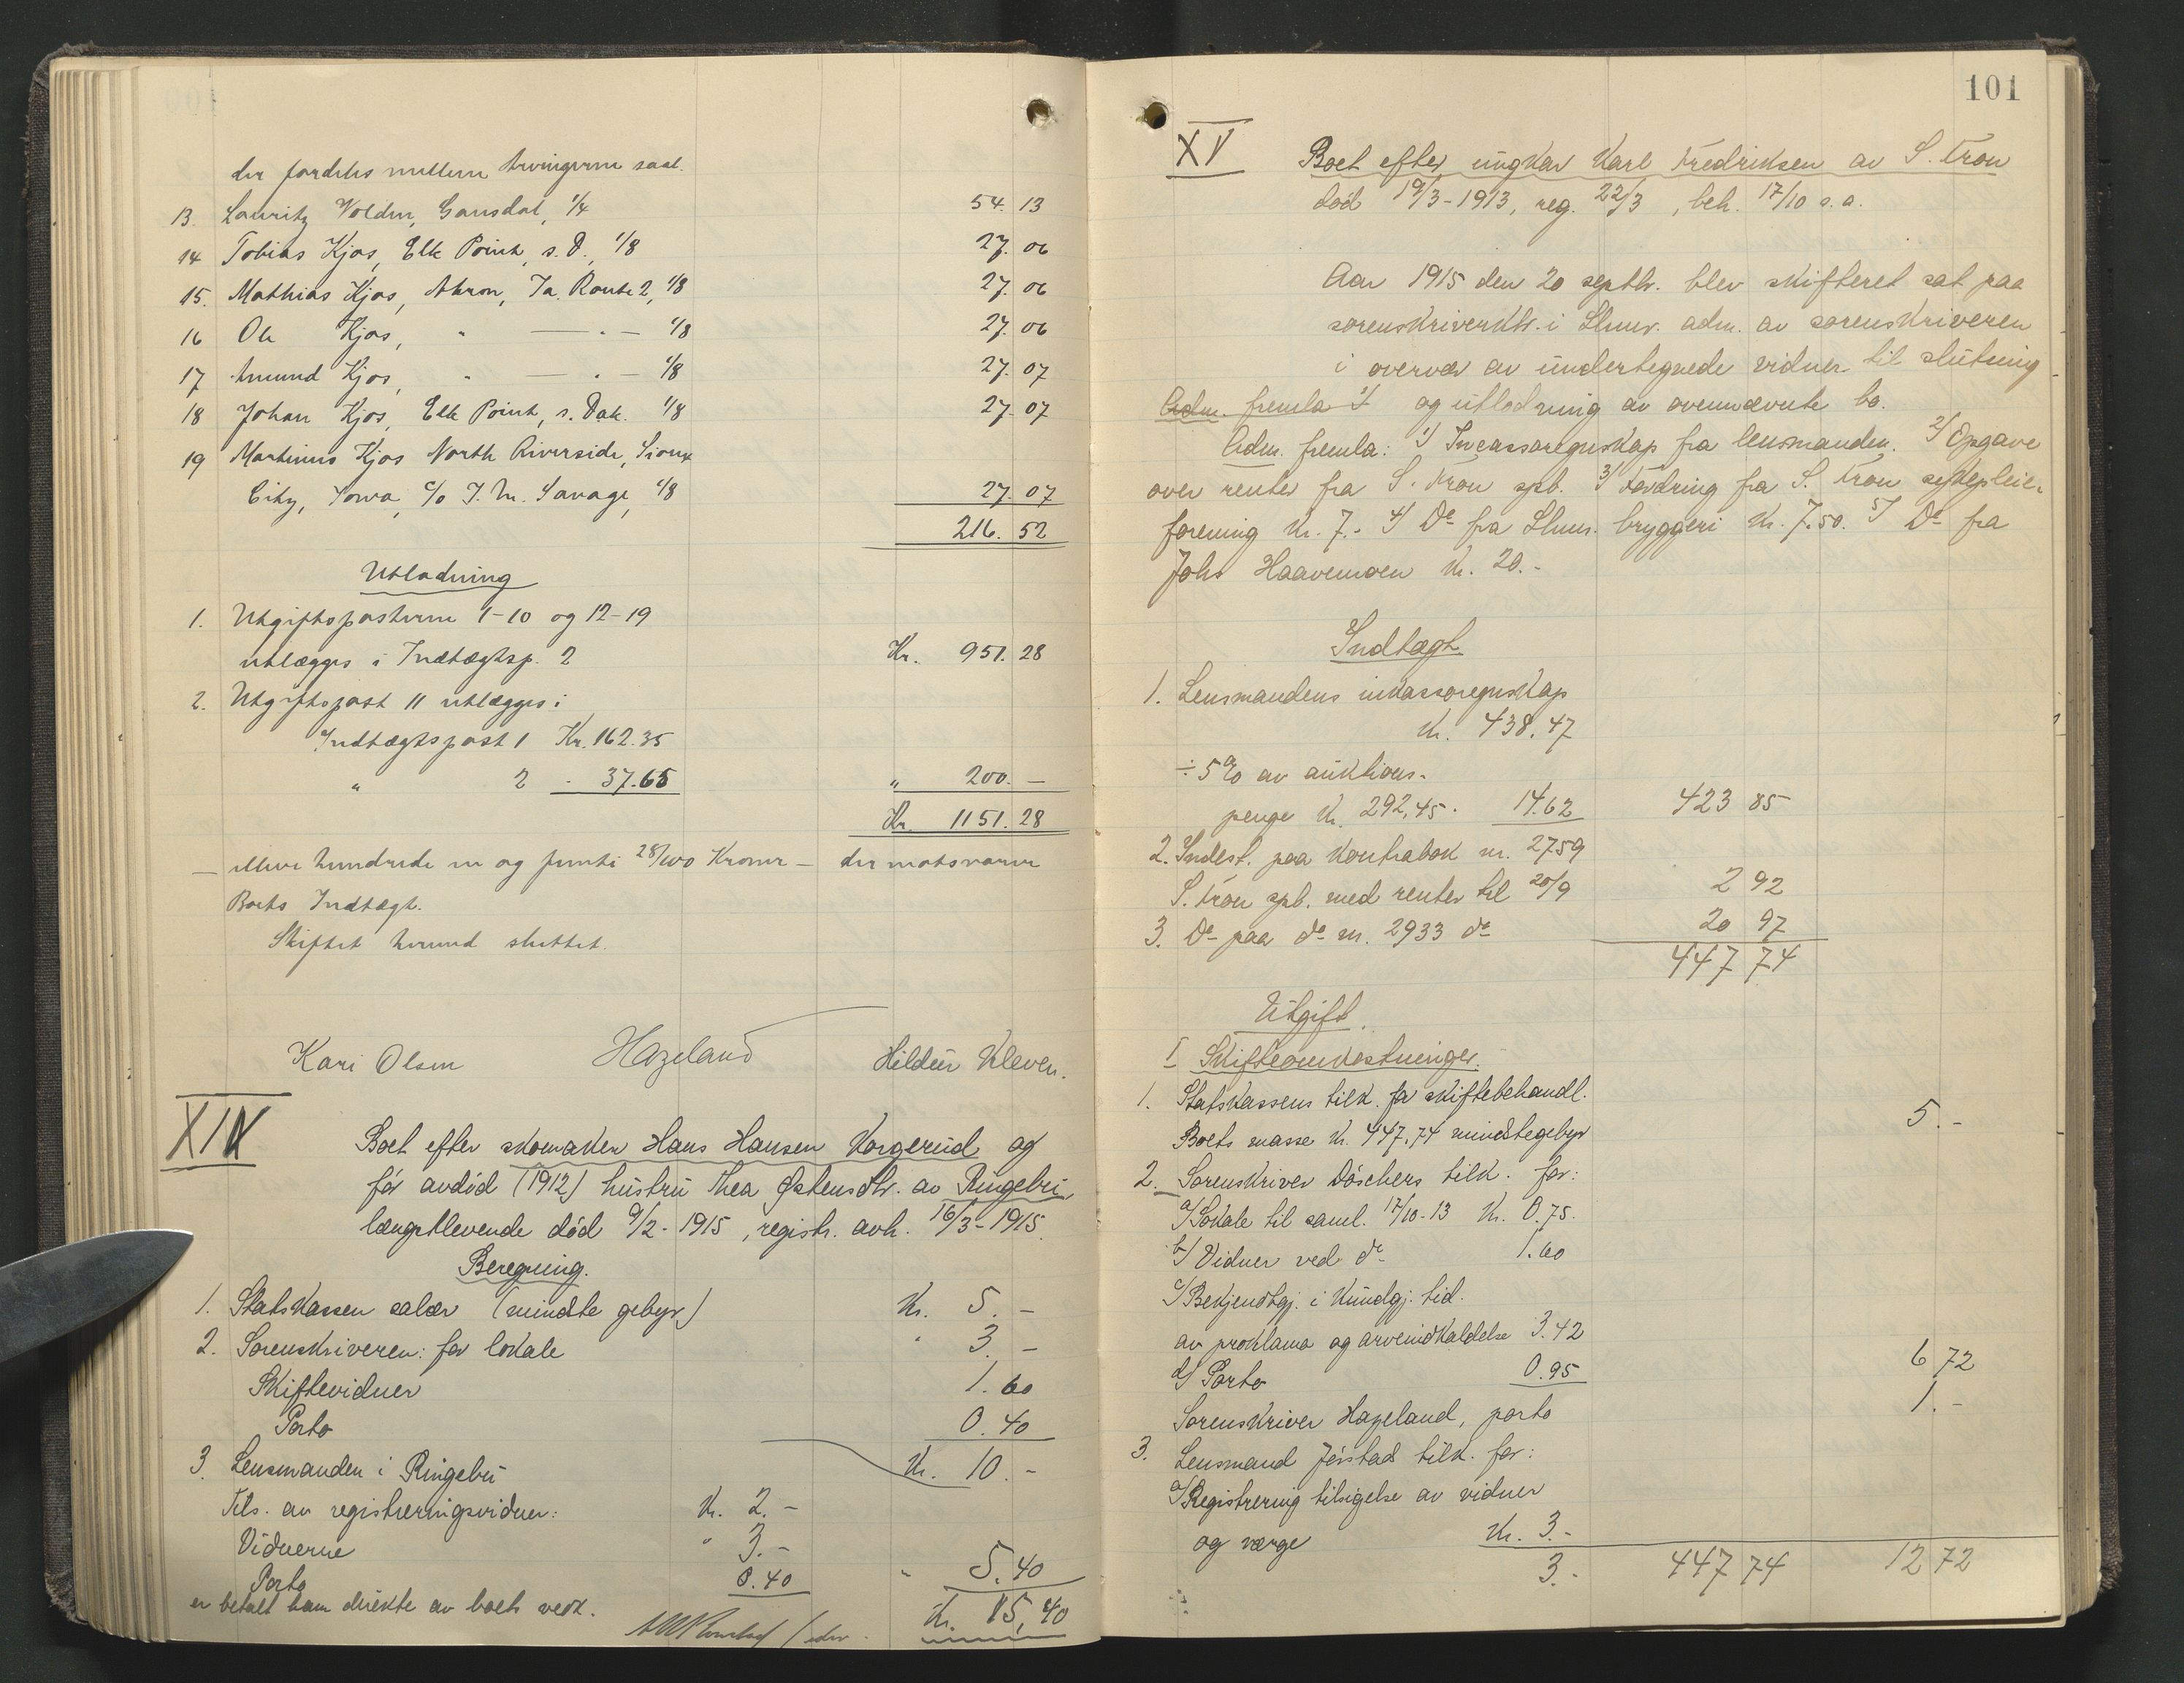 der fordeles mellem Arvingerne saal.
13. Lauritz Volden, Gausdal, 1/4 54. 13
14 Tobias Kjos, Elk Point, s. D., 1/8 27. 06
15. Mathias Kjos, Akron, Ia. Route 2, 1/8 27. 06
16 Ole Kjos, " — " — 1/8 27. 06
17 Amund Kjos, " — " — 1/8 27. 07
18 Johan Kjos, Elk Point, s. Dak. 1/8 27. 07
19 Martinus Kjos North Riverside, Sioux
City, Iowa, c/o J. M. Savage, 1/8 27. 07
216. 52
Utlodning
1. Utgiftsposterne 1-10 og 12-19
utlægges i Indtægtsp. 2 Kr. 951. 28
2. Utgiftspost 11 utlægges i
Indtægtspost 1 Kr. 162.35
" 2 - 37.65 " 200. —
Kr. 1151. 28
— elleve hundrede en og femti 28/100 Kroner — der motsvarer
Boets Indtægt.
Skiftet hermed sluttet.
Kari Olsen Hazeland Hildur Kleven.
XIV
Boet efter skomaker Hans Hansen Korgerud og
før avdød (1912) hustru Thea Østensdtr. av Ringebu,
længstlevende død 9/2 - 1915, registr. avh. 16/3 - 1915.
Beregning.
1. Statskassen salær (mindste gebyr) Kr. 5. -
2. Sorenskriveren: for lokale " 3. -
Skiftevidner 1. 60
Porto 0. 40
Kr. 10. -
3. Lensmanden i Ringebu
Tils. av registreringsvidner: Kr. 2. -
Vidnerne " 3. -
Porto 0. 40 " 5. 40
er betalt ham direkte av boets vedk.
Kr. 15, 40
101
XV
Boet efter ungkar Karl Fredriksen av S. Fron
død 19/3 - 1913, reg. 22/3, beh. 17/10 s. a.
Aar 1915 den 20 septbr. blev skifteret sat paa
sorenskriverktr. i Lhmr. adm. av sorenskriveren
i overvær av undertegnede vidner til slutning
Adm. fremla 1) og utlodning av ovennævnte bo.
Adm. fremla: 1) Incassoregnskap fra lensmanden. 2) Opgave
over renter fra S. Fron spb. 3) Fordring fra S. Fron sykepleie-
forening Kr. 7.- 4) Do fra Lhmr. bryggeri Kr. 7.50. 5) Do fra
Johs Haavemoen Kr. 20.-
Indtægt
1. Lensmandens inkassoregnskap
Kr. 438.47
÷ 5% av auktions-
penge Kr. 292.45. 14.62 423 85
2. Indest. paa Kontrabok nr. 2759
S. Fron spb. med renter til 20/9 2 92
3. Do paa do nr. 2933 do 20 97
447 74
Utgift.
I Skifteomkostninger.
1. Statskassens tilk. for skiftebehandl.
Boets masse Kr. 447.74 mindstegebyr 5. -
2. Sorenskriver Döschers tilk. for:
a) Lokale til saml. 17/10-13 Kr. 0.75.
b) Vidner ved do 1.60
c) Bekjendtgj. i Kundgj. tid.
av proklama og arveindkaldelse 3.42
d) Porto 0.95 6 72
Sorenskriver Hazeland, porto 1. -
3. Lensmand Jörstad tilk. for:
a) Registrering tilsigelse av vidner
og værge Kr. 3.-
3.- 447 74 12 72